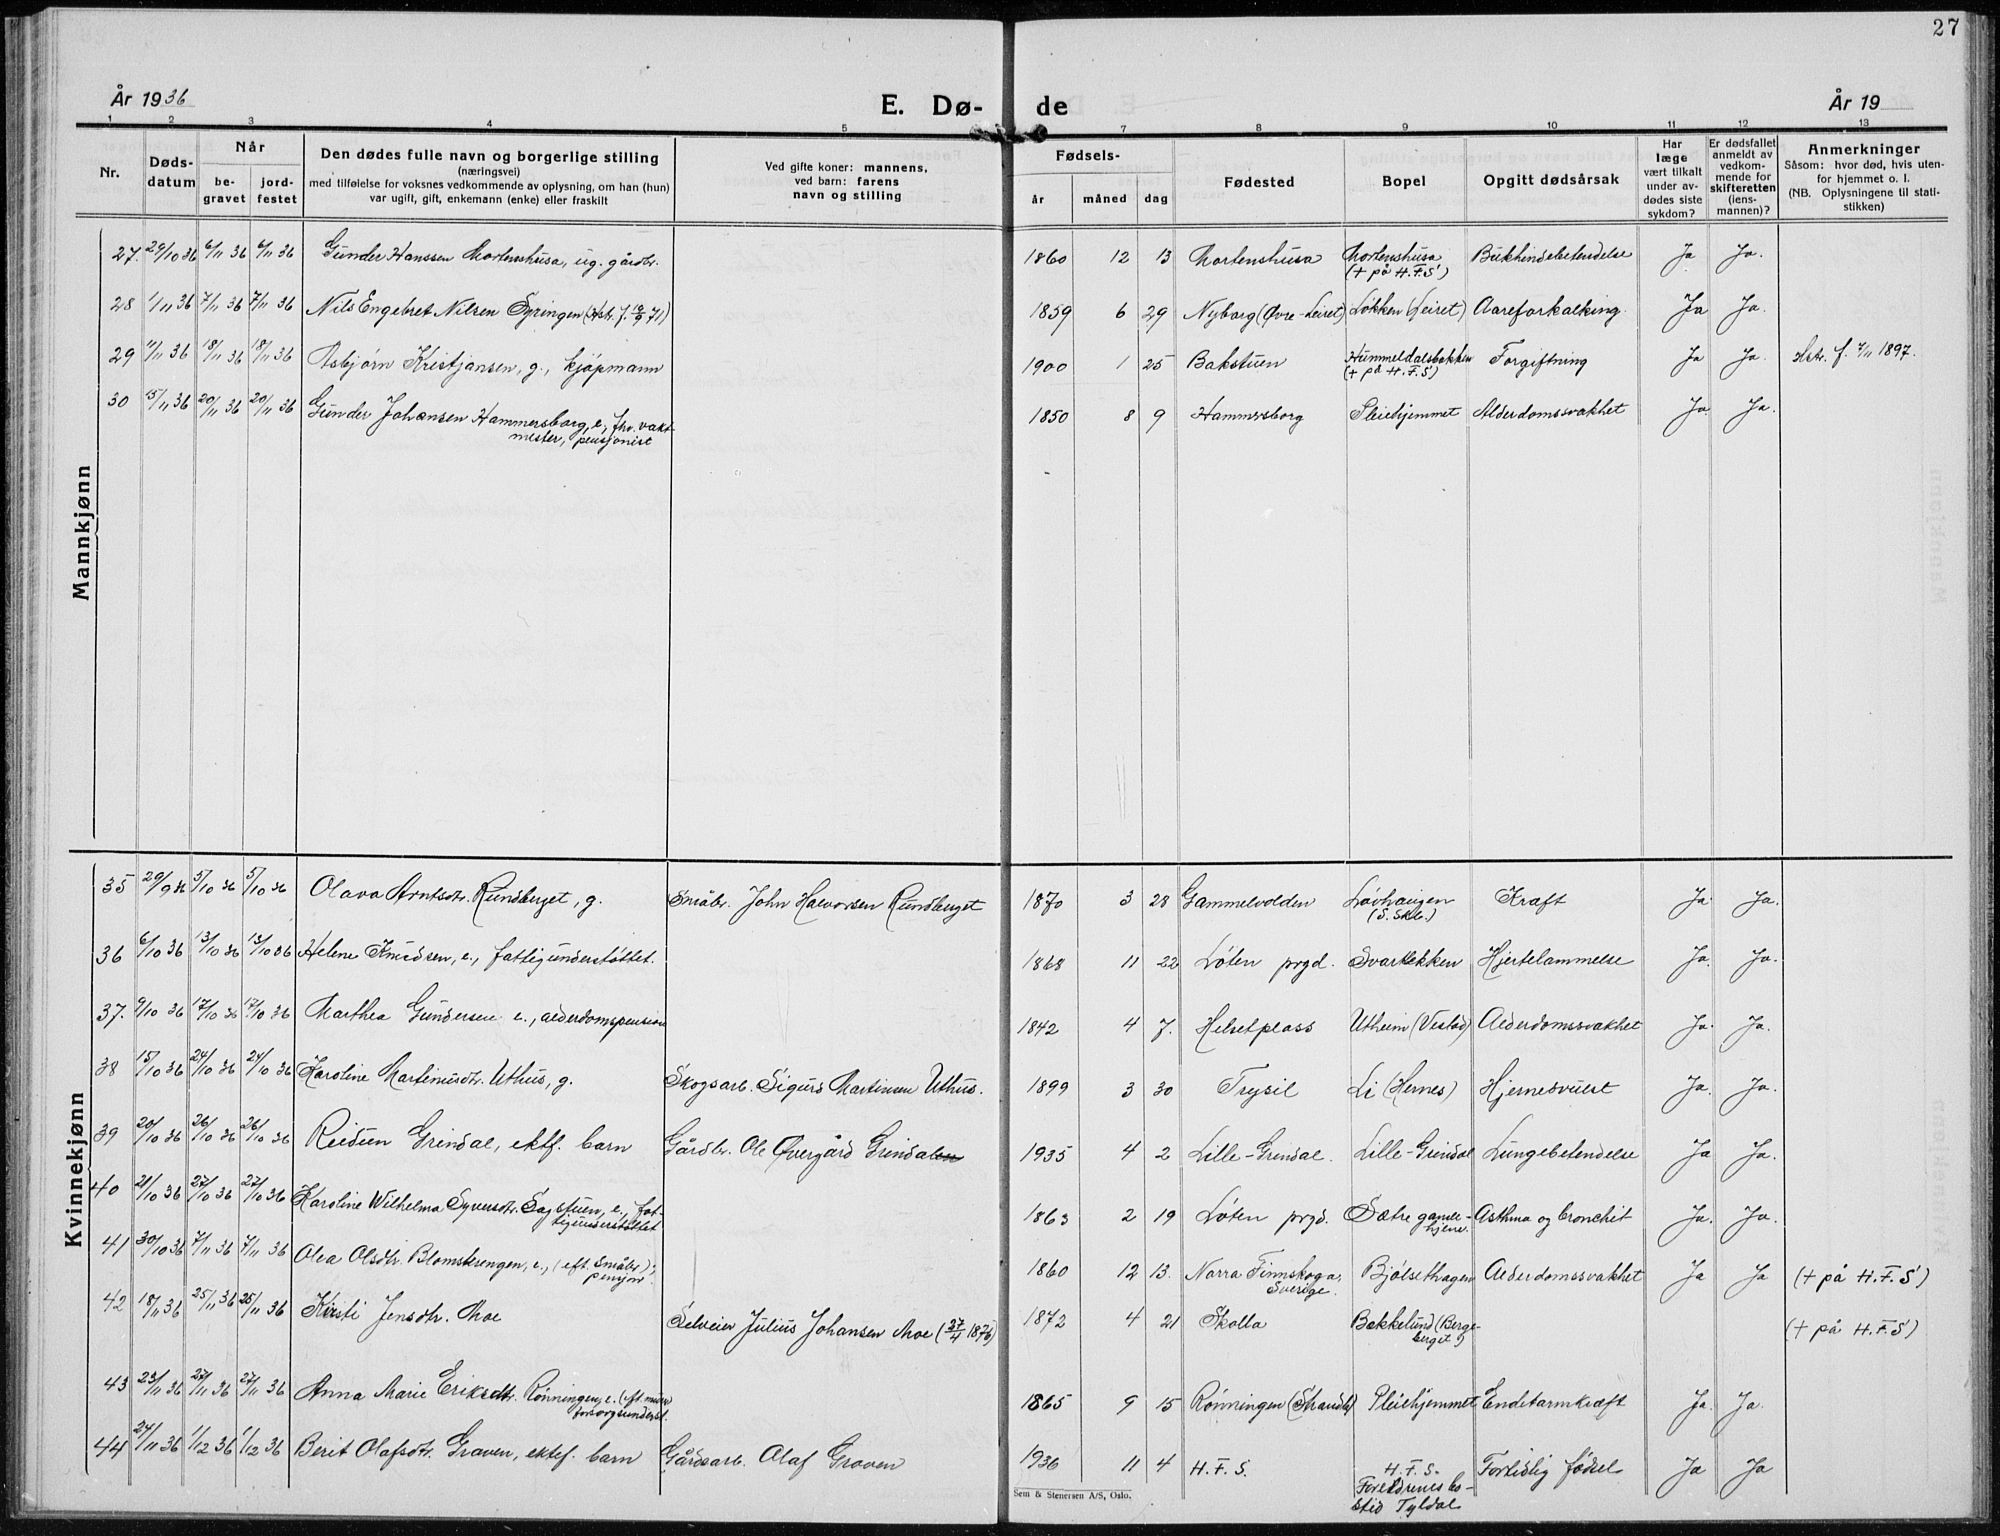 27
År 1936
E. Dø- de
År 19
1 2 3 4 5 7 8 9 10 11 12 13
Nr.
Døds-
datum
Når
be-
gravet
jord-
festet
Den dødes fulle navn og borgerlige stilling
(næringsvei)
med tilføielse for voksnes vedkommende av oplysning, om han (hun)
var ugift, gift, enkemann (enke) eller fraskilt
Ved gifte koner: mannens,
ved barn: farens
navn og stilling
Fødsels-
år måned dag
Fødested
Bopel
Opgitt dødsårsak
Har
læge
vært tilkalt
under av-
dødes siste
sykdom?
Er dødsfallet
anmeldt av
vedkom-
mende for
skifteretten
(lens-
mannen)?
Anmerkninger
Såsom: hvor død, hvis uten-
for hjemmet o. l.
(NB. Oplysningene til stati-
stikken)
Mannkjønn
27. 29/10 36 6/11 36 6/11 36 Gunder Hanssen Mortenshusa, ug. gårdbr. 1860 12 13 Mortenshusa Mortenshusa Bukhindebetendelse Ja Ja.
(+ på H.F.S.)
28 1/11 36 7/11 36 7/11 36 Nils Engebret Nilsen Syringen (Hstr. f. 19/9 71) 1859 6 29 Nyborg (Øvre-Leiret) Løkken (Leiret) Aareforkalking. Ja Ja.
29 11/11 36 18/11 36 18/11 36 Asbjørn Kristjansen, g., kjøpmann 1900 1 25 Bakstuen Hummeldalsbakken Forgiftning Ja Ja. Hstr. f. 7/11 1897.
(+ på H.F.S.)
30 15/11 36 20/11 36 20/11 36 Gunder Johansen Hammersborg, e., fhv. vakt-
mester, pensjonist
1850 8 9 Hammersborg Pleiehjemmet Alderdomssvakhet Ja Ja.
Kvinnekjønn
35 29/9 36 5/10 36 5/10 36 Olava Arntsdtr. Rundberget, g. Småbr. John Halvorsen Rundberget 1870 3 28 Gammelvolden Løvhaugen Kraft Ja. Ja.
(S. Skb.)
36 6/10 36 13/10 36 13/10 36 Helene Knudsen, e., fattigunderstøttet. 1868 11 22 Løten prgd. Svartbekken Hjertelammelse Ja. Ja.
37. 9/10 36 17/10 36 17/10 36 Marthea Gundersen e., alderdomspension 1842 4 7. Helsetplass Utheim (Vestad) Alderdomssvakhet Ja. Ja.
38 15/10 36 24/10 36 24/10 36 Karoline Martinusdtr. Uthus, g. Skogsarb. Sigurd Martinsen Uthus. 1899 3 30 Trysil Li (Hernes) Hjernesvulst Ja. Ja.
39 20/10 36 26/10 36 26/10 36 Reidun Grindal, ektf. barn Gårdbr. Ole Øvergård Grindalen 1935 4 2 Lille-Grindal. Lille-Grindal Lungebetendelse Ja Ja.
40 21/10 36 27/10 36 27/10 36 Karoline Wilhelma Syversdtr. Sagstuen, e., fat-
tigunderstøttet
1863 2 19 Løten prgd. Sætre gamle- Asthma og bronchit Ja. Ja.
hjem.
41 30/10 36 7/11 36 7/11 36 Olea Olsdtr. Blomsterengen, e., (eft. Småbr.),
pensjon.
1860 12 13. Norra Finnskoga, Bjølsethagen Alderdomssvakhet Ja Ja (+ på H.F.S.)
Sverige.
42 18/11 36 25/11 36 25/11 36 Kirsti Jensdtr. Moe Selveier Julius Johansen Moe (27/4 1876) 1872 4 21 Skolla Bakkelund (Berge-
berget.) (+ på H.F.S.)
43 23/11 36 27/11 36 27/11 36 Anna Marie Eriksdtr. Rønningen, e. (eft. murer
forsorgsunderst.
1865 9 15 Rønningen (Strandb.) Pleiehjemmet Endetarmkræft Ja. Ja.
44 24/11 36 1/12 36 1/12 36 Berit Olafsdtr. Graven, ektef. barn Gårdsarb. Olaf Graven 1936 11 4 H.F.S. H.F.S. Fortidlig fødsel Ja Ja
Foreldrenes bo-
sted Tyldal
Sem & Stenersen A/S, Oslo.